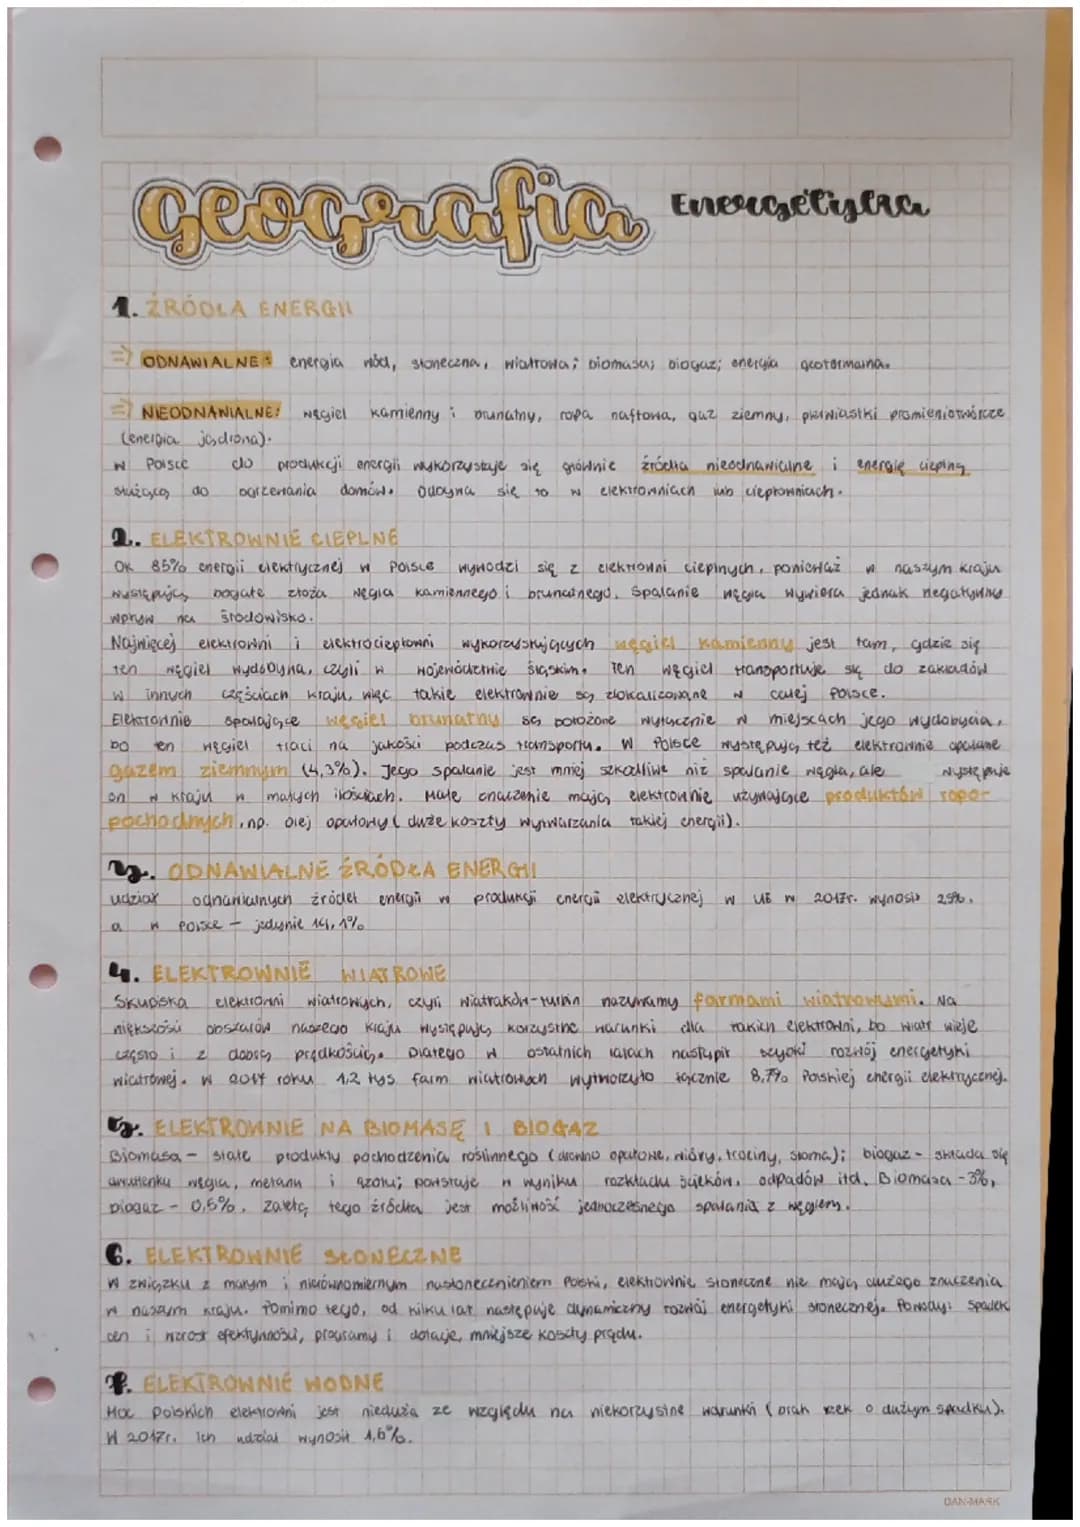 geografia Energetyka
1. ŹRÓDŁA ENERGII
=> ODNAWIALNE: energia wód, słoneczna, wiatrowa; biomasa; biogaz; energia geotermalna.
=> NIEODNAWIALNE: węgiel kamienny i brunatny, ropa naftowa, gaz ziemny, pierwiastki promieniotwórcze
(energia jądrowa).
W Polsce do produkcji energii wykorzystuje się głównie źródła nieodnawialne i energię cieplną
służącą do ogrzewania domów. Odbywa się to w elektrowniach lub ciepłowniach.
2. ELEKTROWNIE CIEPLNE
Ok 85% energii elektrycznej w Polsce wywodzi się z elektrowni cieplnych, ponieważ w naszym kraju
występują bogate złoża węgla kamiennego i brunatnego. Spalanie węgla wywiera jednak negatywny
wpływ na środowisko.
Najwięcej elektrowni i elektrociepłowni wykorzystujących węgiel kamienny jest tam, gdzie się
ten węgiel wydobywa, czyli w województwie śląskim. Ten węgiel transportuje się do zakładów
w innych częściach kraju, więc takie elektrownie są zlokalizowane w całej Polsce.
Elektrownie spalające węgiel brunatny są położone wyłącznie w miejscach jego wydobycia,
bo ten węgiel traci na jakości podczas transportu. W Polsce występują też elektrownie opalane
gazem ziemnym (4,3%). Jego spalanie jest mniej szkodliwe niż spalanie węgla, ale występuje
on w kraju w małych ilościach. Małe znaczenie mają elektrownie używające produktów ropo-
pochodnych, np. olej opałowy (duże koszty wytwarzania takiej energii).
3. ODNAWIALNE ŹRÓDŁA ENERGII
Udział odnawialnych źródeł energii w produkcji energii elektrycznej w UE w 2017r. wynosił
a w Polsce - jedynie 14,1%
4. ELEKTROWNIE WIATROWE
Skupiska elektrowni wiatrowych, czyli wiatraków-turbin nazywamy farmami wiatrowymi. Na
większości obszarów naszego kraju występują korzystne warunki dla takich elektrowni, bo wiatr wieje
często i z dobrą prędkością. Dlatego w ostatnich latach nastąpił szybki rozwój energetyki
wiatrowej. W 2017 roku 1,2 tys farm wiatrowych wytworzyło łącznie 8,7% Polskiej energii elektrycznej.
5. ELEKTROWNIE NA BIOMASĘ I BIOGAZ
Biomasa - stałe produkty pochodzenia roślinnego (drewno opałowe, wióry, trociny, słoma); biogaz - składa się
dwutlenku węgla, metanu i azotu; powstaje w wyniku rozkładu ścieków, odpadów itd. Biomasa - 3%,
biogaz - 0,5%. Zaletą tego źródła jest możliwość jednoczesnego spalania z węglem.
6. ELEKTROWNIE SŁONECZNE
W związku z małym i nierównomiernym nasłonecznieniem Polski, elektrownie słoneczne nie mają dużego znaczenia
w naszym kraju. Pomimo tego, od kilku lat następuje dynamiczny rozwój energetyki słonecznej. Powody: spadek
cen i wzrost efektywności, programy i dotacje, mniejsze koszty prądu.
7. ELEKTROWNIE WODNE
Moc polskich elektrowni jest nieduża ze względu na niekorzystne warunki (brak rzek o dużym spadku).
W 2017r. ich udział wynosił 1,6%.
DAN-MARK